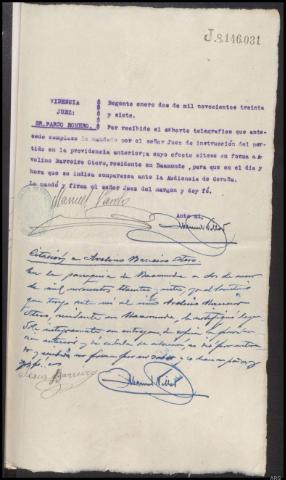 J.8.146.031
VIDENCIA
JUEZ:
SR.PARDO ROMERO.
Begonte enero dos de mil novecientos treinta
y siete.
Por recibido el exhorto telegrafico que ante-
cede cumplase lo mandado por el señor Juez de instrucción del par-
tido en la providencia anterior; a cuyo efecto citese en forma a A-
velino Barreiro Otero, residente en Baamonde, para que en el dia y
hora que se indica comparezca ante la Audiencia de Coruña.
Lo mandó y firma el señor Juez del margen y doy fé.
Manuel Pardo
Ante mi,
Manuel
Citación a Avelino Barreiro Otero.
En la parroquia de Baamonde a dos de enero
de mil novecientos treinta y siete,
que tengo ante mi al Avelino Barreiro
Otero, residente en Baamonde, le notifiqué
integramente con entrega de copia la providen-
cia anterior y
y no firma por
Jesus Barreiro
Manuel